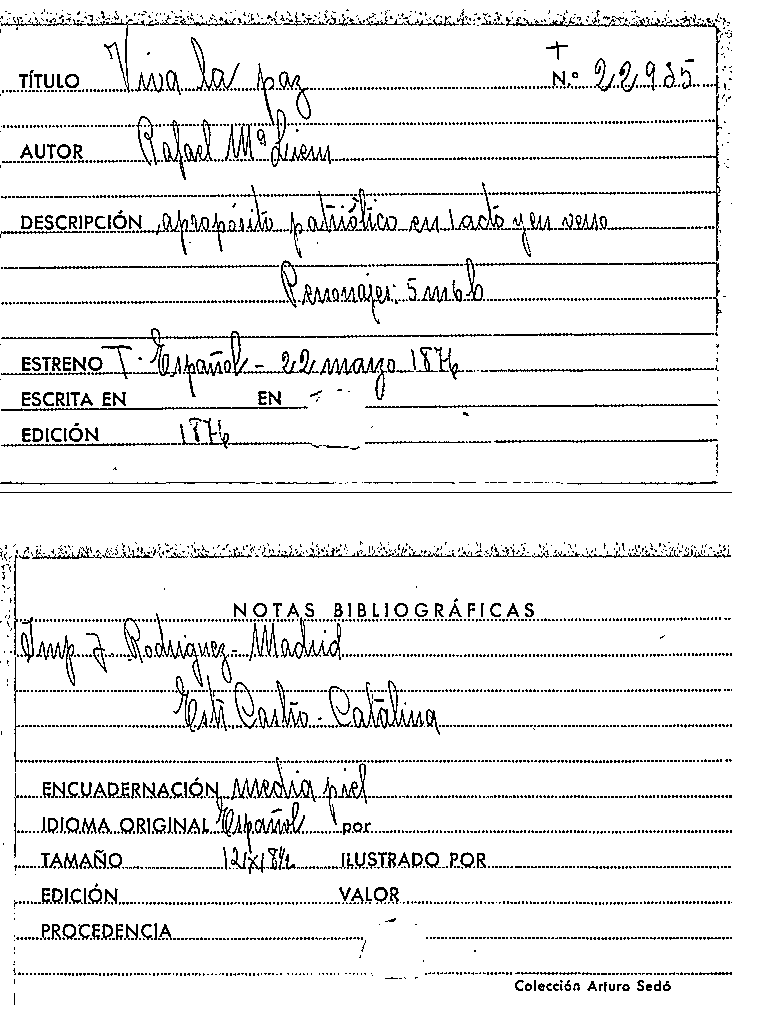 +
TÍTULO Viva la paz N.º 22985
AUTOR Rafael Mª Liern
DESCRIPCIÓN, apropósito patriótico en 1 acto y en verso
Personajes: 5 m 6 h
ESTRENO T. Español - 22 marzo 1876
ESCRITA EN EN
EDICIÓN 1876
NOTAS BIBLIOGRÁFICAS
Imp J. Rodriguez - Madrid
Catalina
ENCUADERNACIÓN media piel
IDIOMA ORIGINAL Español por
TAMAÑO ILUSTRADO POR
EDICIÓN VALOR
PROCEDENCIA
Colección Arturo Sedó